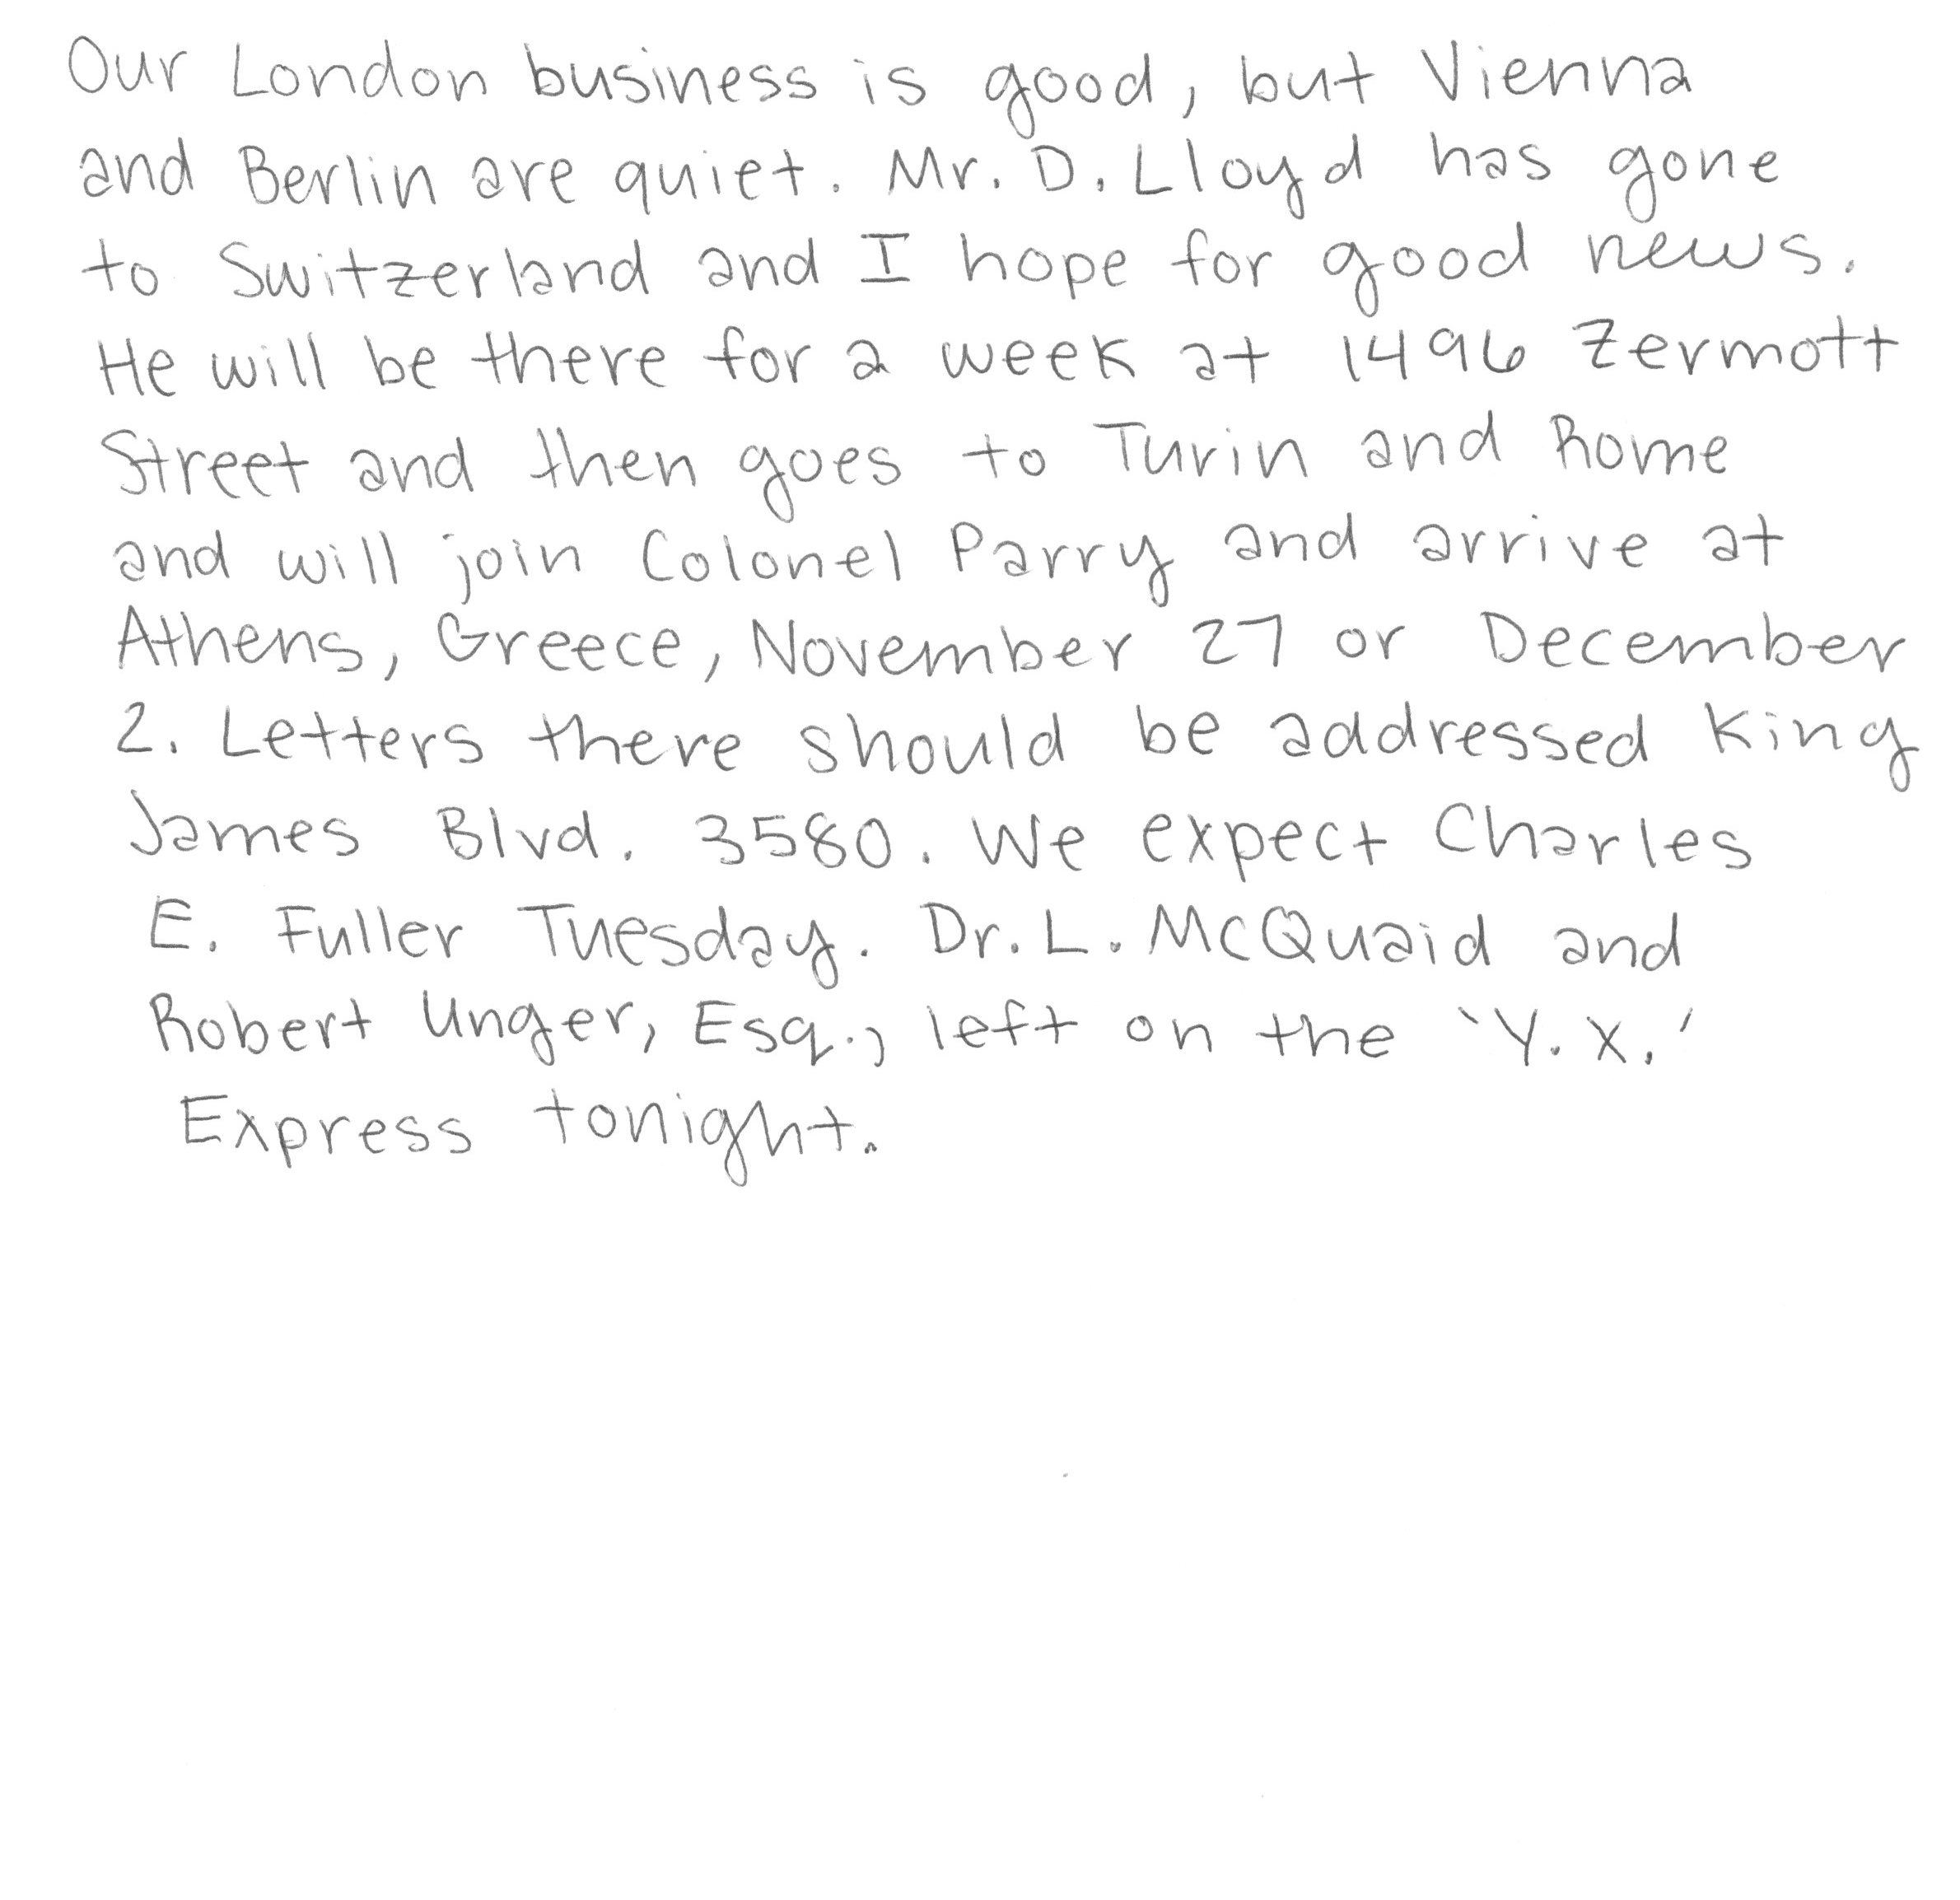 Our London business is good, but Vienna
and Berlin are quiet. Mr. D. Lloyd has gone
to Switzerland and I hope for good news.
He will be there for a week at 1496 Zermott
Street and then goes to Turin and Rome
and will join Colonel Parry and arrive at
Athens, Greece, November 27 or December
2. Letters there should be addressed King
James Blvd. 3580. We expect Charles
E. Fuller Tuesday. Dr. L. McQuaid and
Robert Unger, Esq., left on the 'Y.X.'
Express tonight.